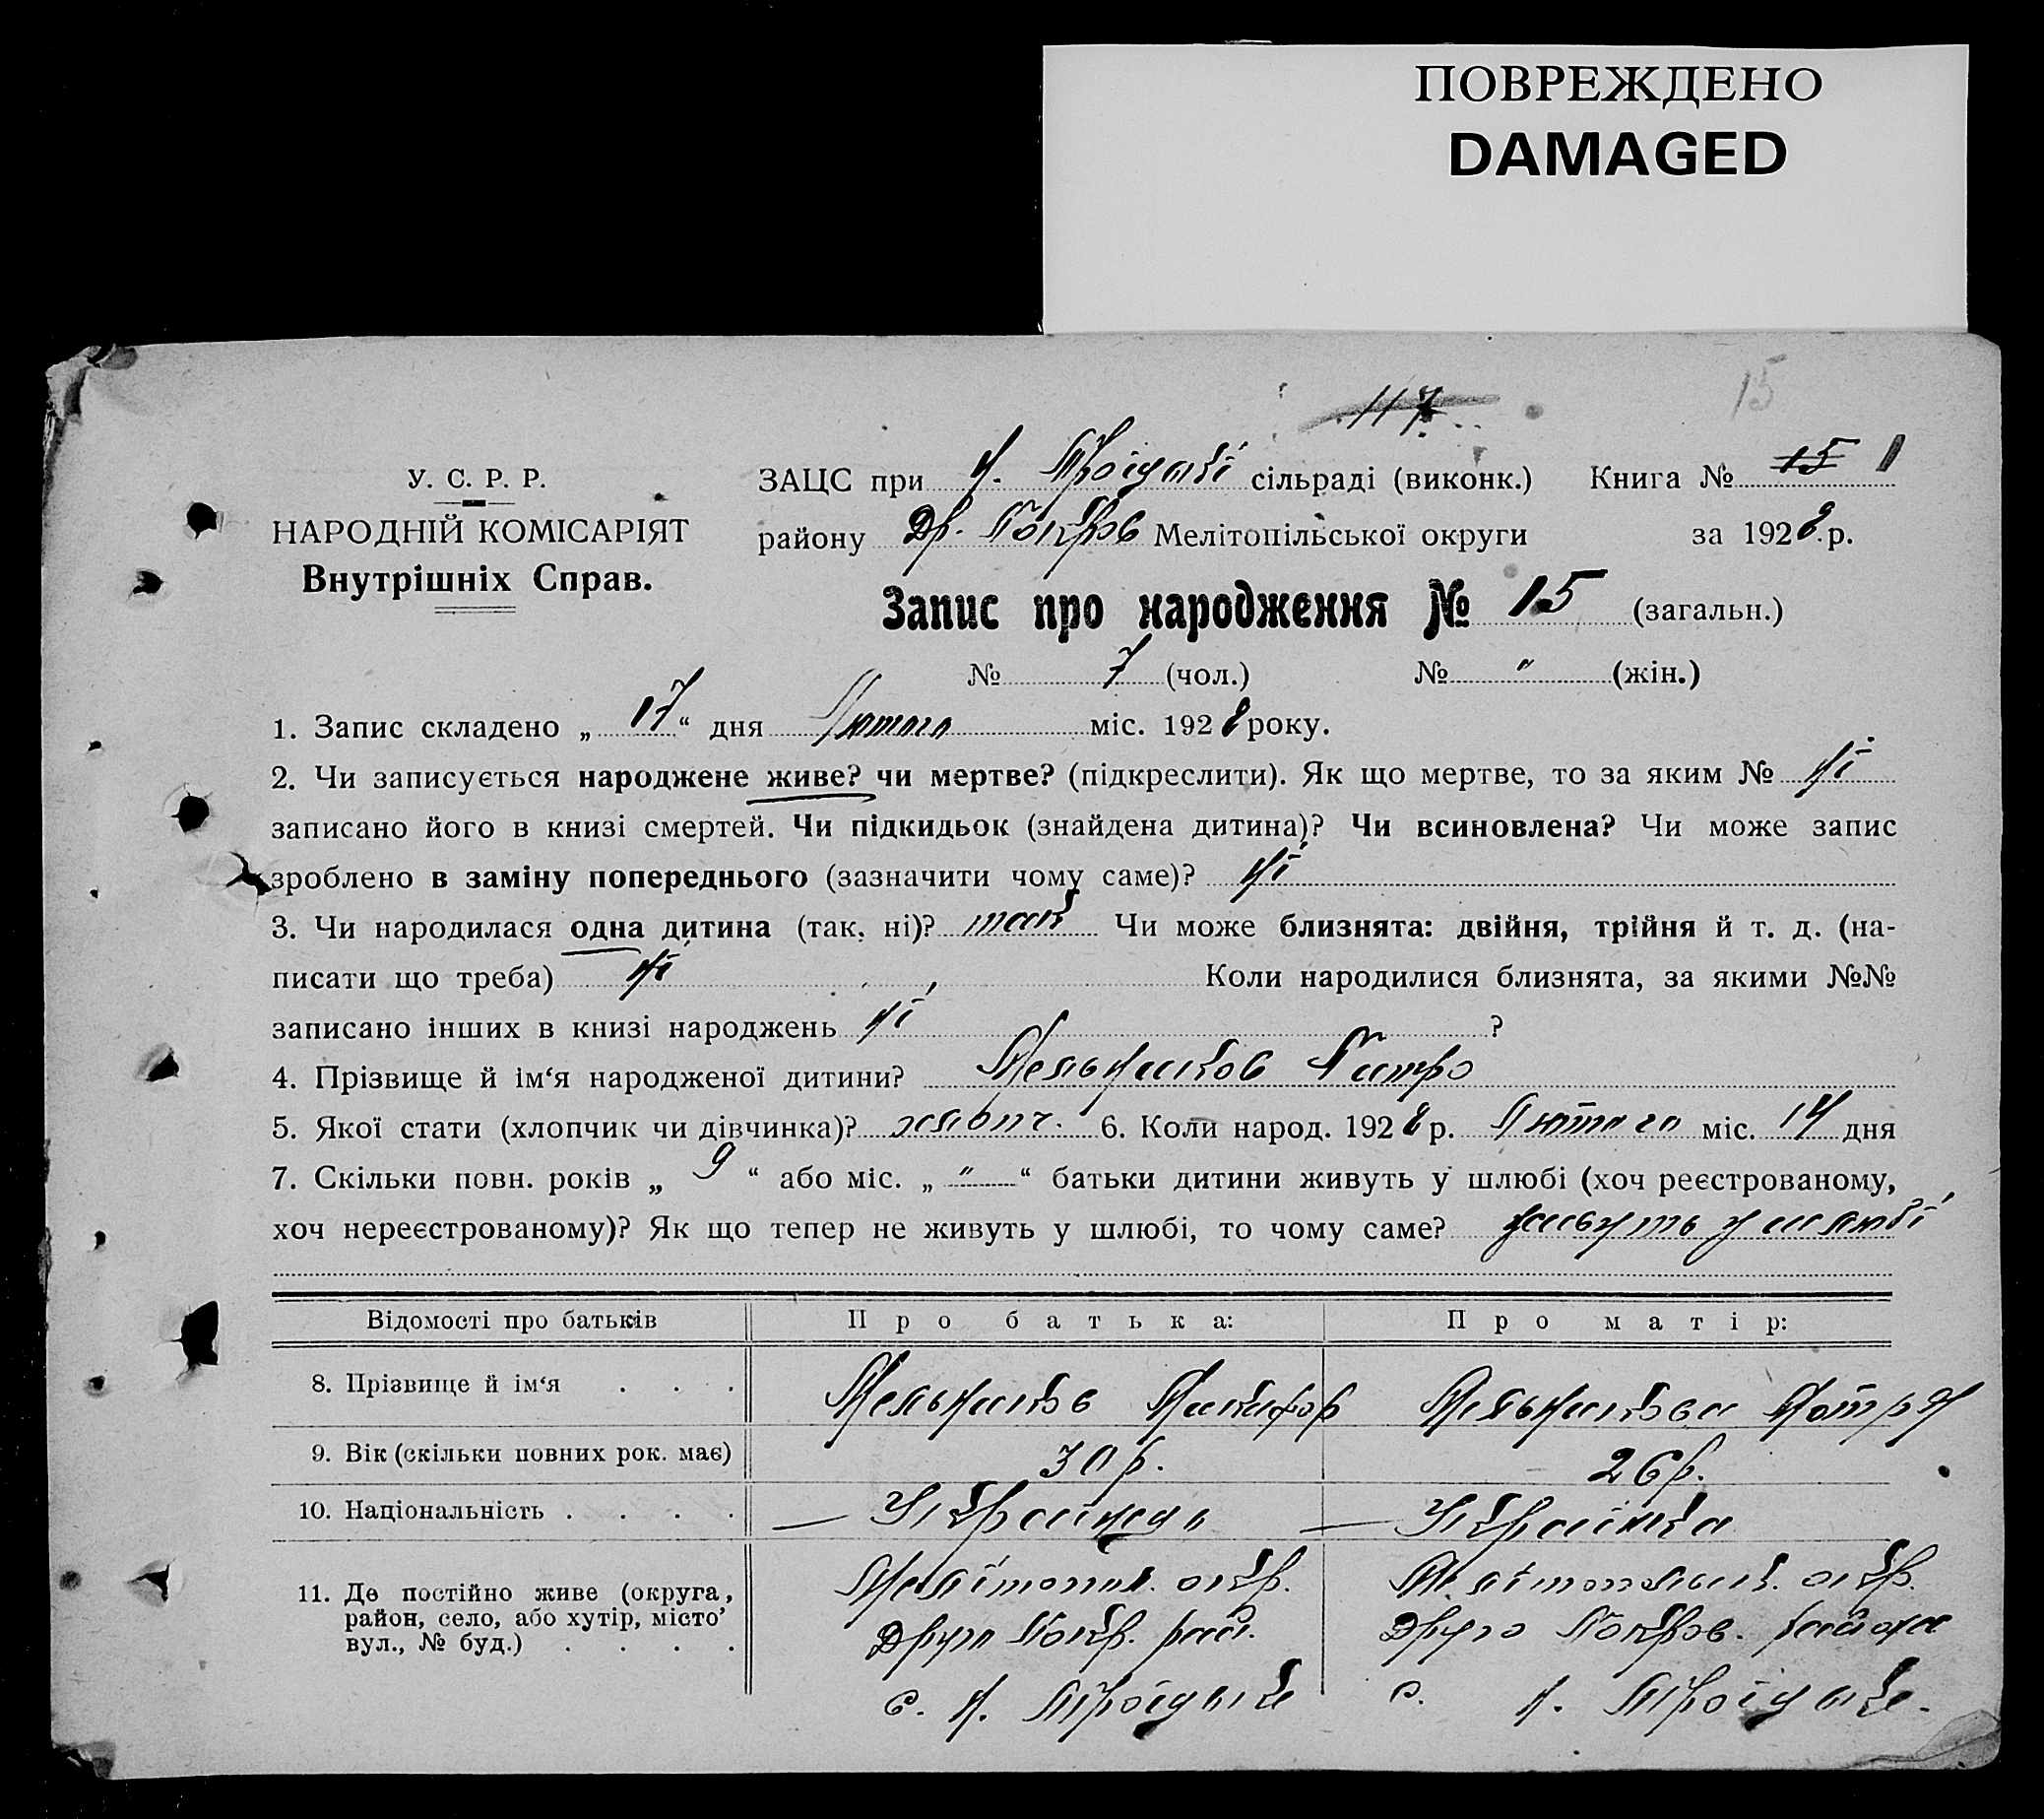 ПОВРЕЖДЕНО
DAMAGED
117
15
У. С. Р. Р.
НАРОДНІЙ КОМІСАРІЯТ
Внутрішніх Справ.
ЗАЦС при Н. сільраді (виконк.) Книга № 15 1
району Др. Покров Мелітопільської округи за 1928 р.
Запис про народження № 15 (загальн.)
№ 7 (чол.) № " (жін.)
1. Запис складено „ 17 “ дня Лютого міс. 1928 року.
2. Чи записується народжене живе? чи мертве? (підкреслити). Як що мертве, то за яким № ні
записано його в книзі смертей. Чи підкидьок (знайдена дитина)? Чи всиновлена? Чи може запис
зроблено в заміну попереднього (зазначити чому саме)? ні
3. Чи народилася одна дитина (так, ні)? так Чи може близнята: двійня, трійня й т. д. (на-
писати що треба) ні Коли народилися близнята, за якими №№
записано інших в книзі народжень ні ?
4. Прізвище й ім‘я народженої дитини? Мельников Питро
5. Якої стати (хлопчик чи дівчинка)? хлопч. 6. Коли народ. 1928 р. Лютого міс. 14 дня
7. Скільки повн. років „ 9 “ або міс. „ " “ батьки дитини живуть у шлюбі (хоч реєстрованому,
хоч нереєстрованому)? Як що тепер не живуть у шлюбі, то чому саме? живуть у шлюбі
Відомості про батьків Про батька: Про матір:
8. Прізвище й ім‘я . . . Мельников Никифор Мельникова Мотря
9. Вік (скільки повних рок. має) 30 р. 26 р.
10. Національність . . . . — Українець — Українка
11. Де постійно живе (округа, район, село, або хутір, місто’ вул., № буд.) . . . .
Мелітопол. окр. Друго Покр. рай. с. Н.
окр. Друго Покров. района с. Н.